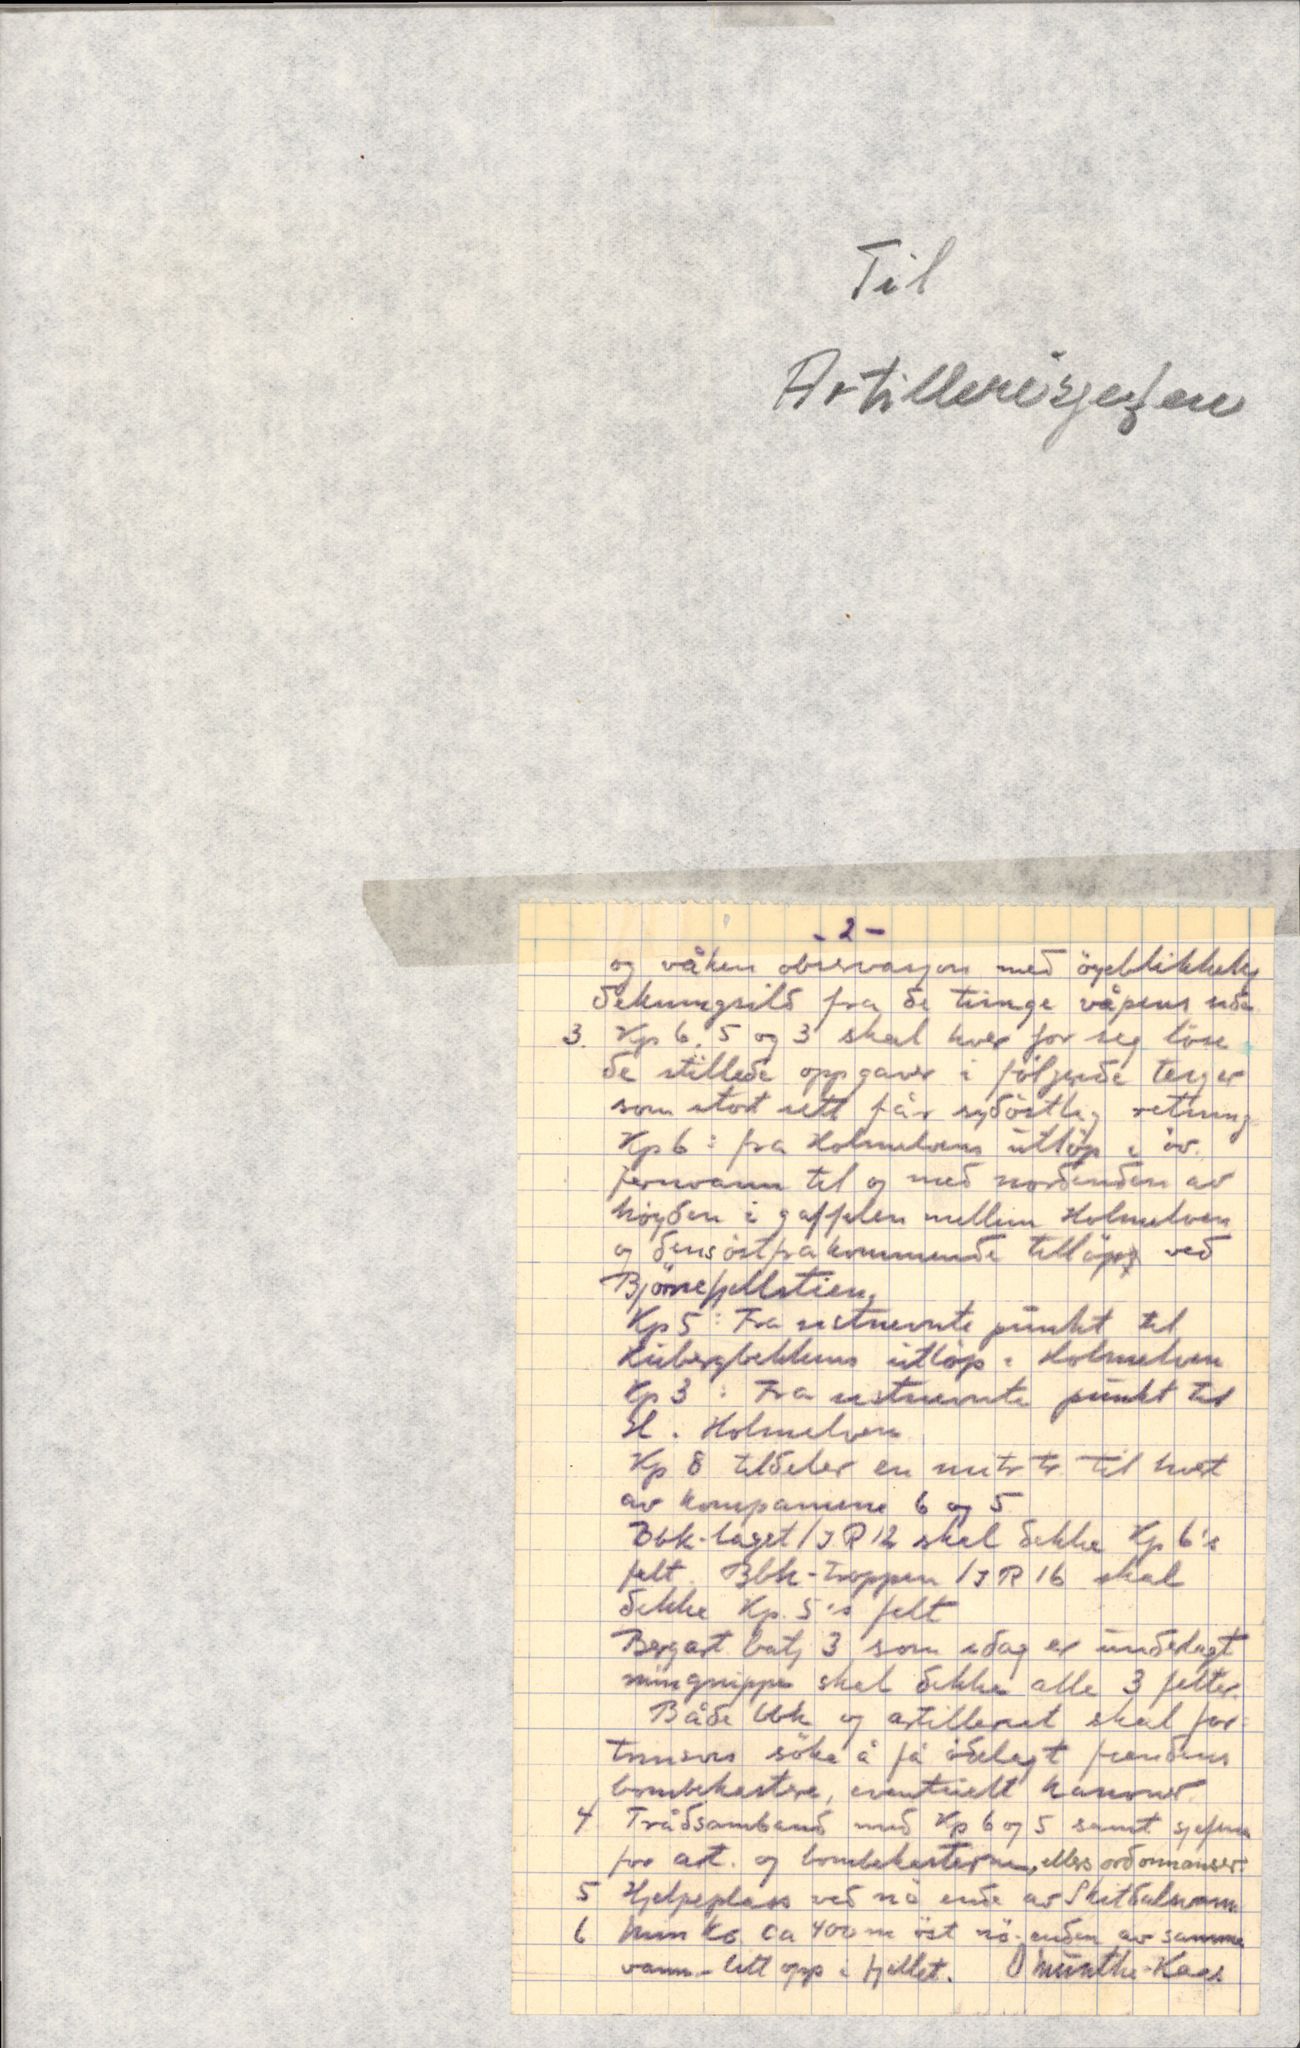 Til
Artillerisjefen
- 2 -
og våken observasjon med öyeblikkelig
dekningsild fra de tunge våpens side
3. Kp 6, 5 og 3 skal hver for seg löse
de stillede oppgaver i följende teiger
som stort sett får sydöstlig retning
Kp 6 : fra Holmelvens utlöp i öv.
jernvann til og med nordenden av
höyden i gaffelen mellem Holmelven
og dens östfrakommende tillöp ved
Björnefjellstien.
Kp 5 : Fra sistnevnte punkt til
Kubergbekkens utlöp i Holmelven
Kp 3 : Fra sistnevnte punkt til
st. Holmelven
Kp 8 tildeler en mitr tr til hvert
av kompaniene 6 og 5
Bbk-laget/JR 12 skal dekke Kp 6's
felt. Bbk-troppen/JR 16 skal
dekke Kp. 5's felt
Bergart batj 3 som idag er underlagt
min gruppe skal dekke alle 3 felter.
Både bbk og artilleriet skal for-
trinsvis söke å få ödelagt fiendens
bombekastere, eventuelt kanoner.
4 Trådsamband med Kp 6 og 5 samt sjefene
for art. og bombekasterne, ellers ordonnanser.
5 Hjelpeplass ved nö ende av Skitdalsvann
6 Min Ko. ca 400 m öst nö-enden av samme
vann - litt opp i fjellet. O Munthe-Kaas